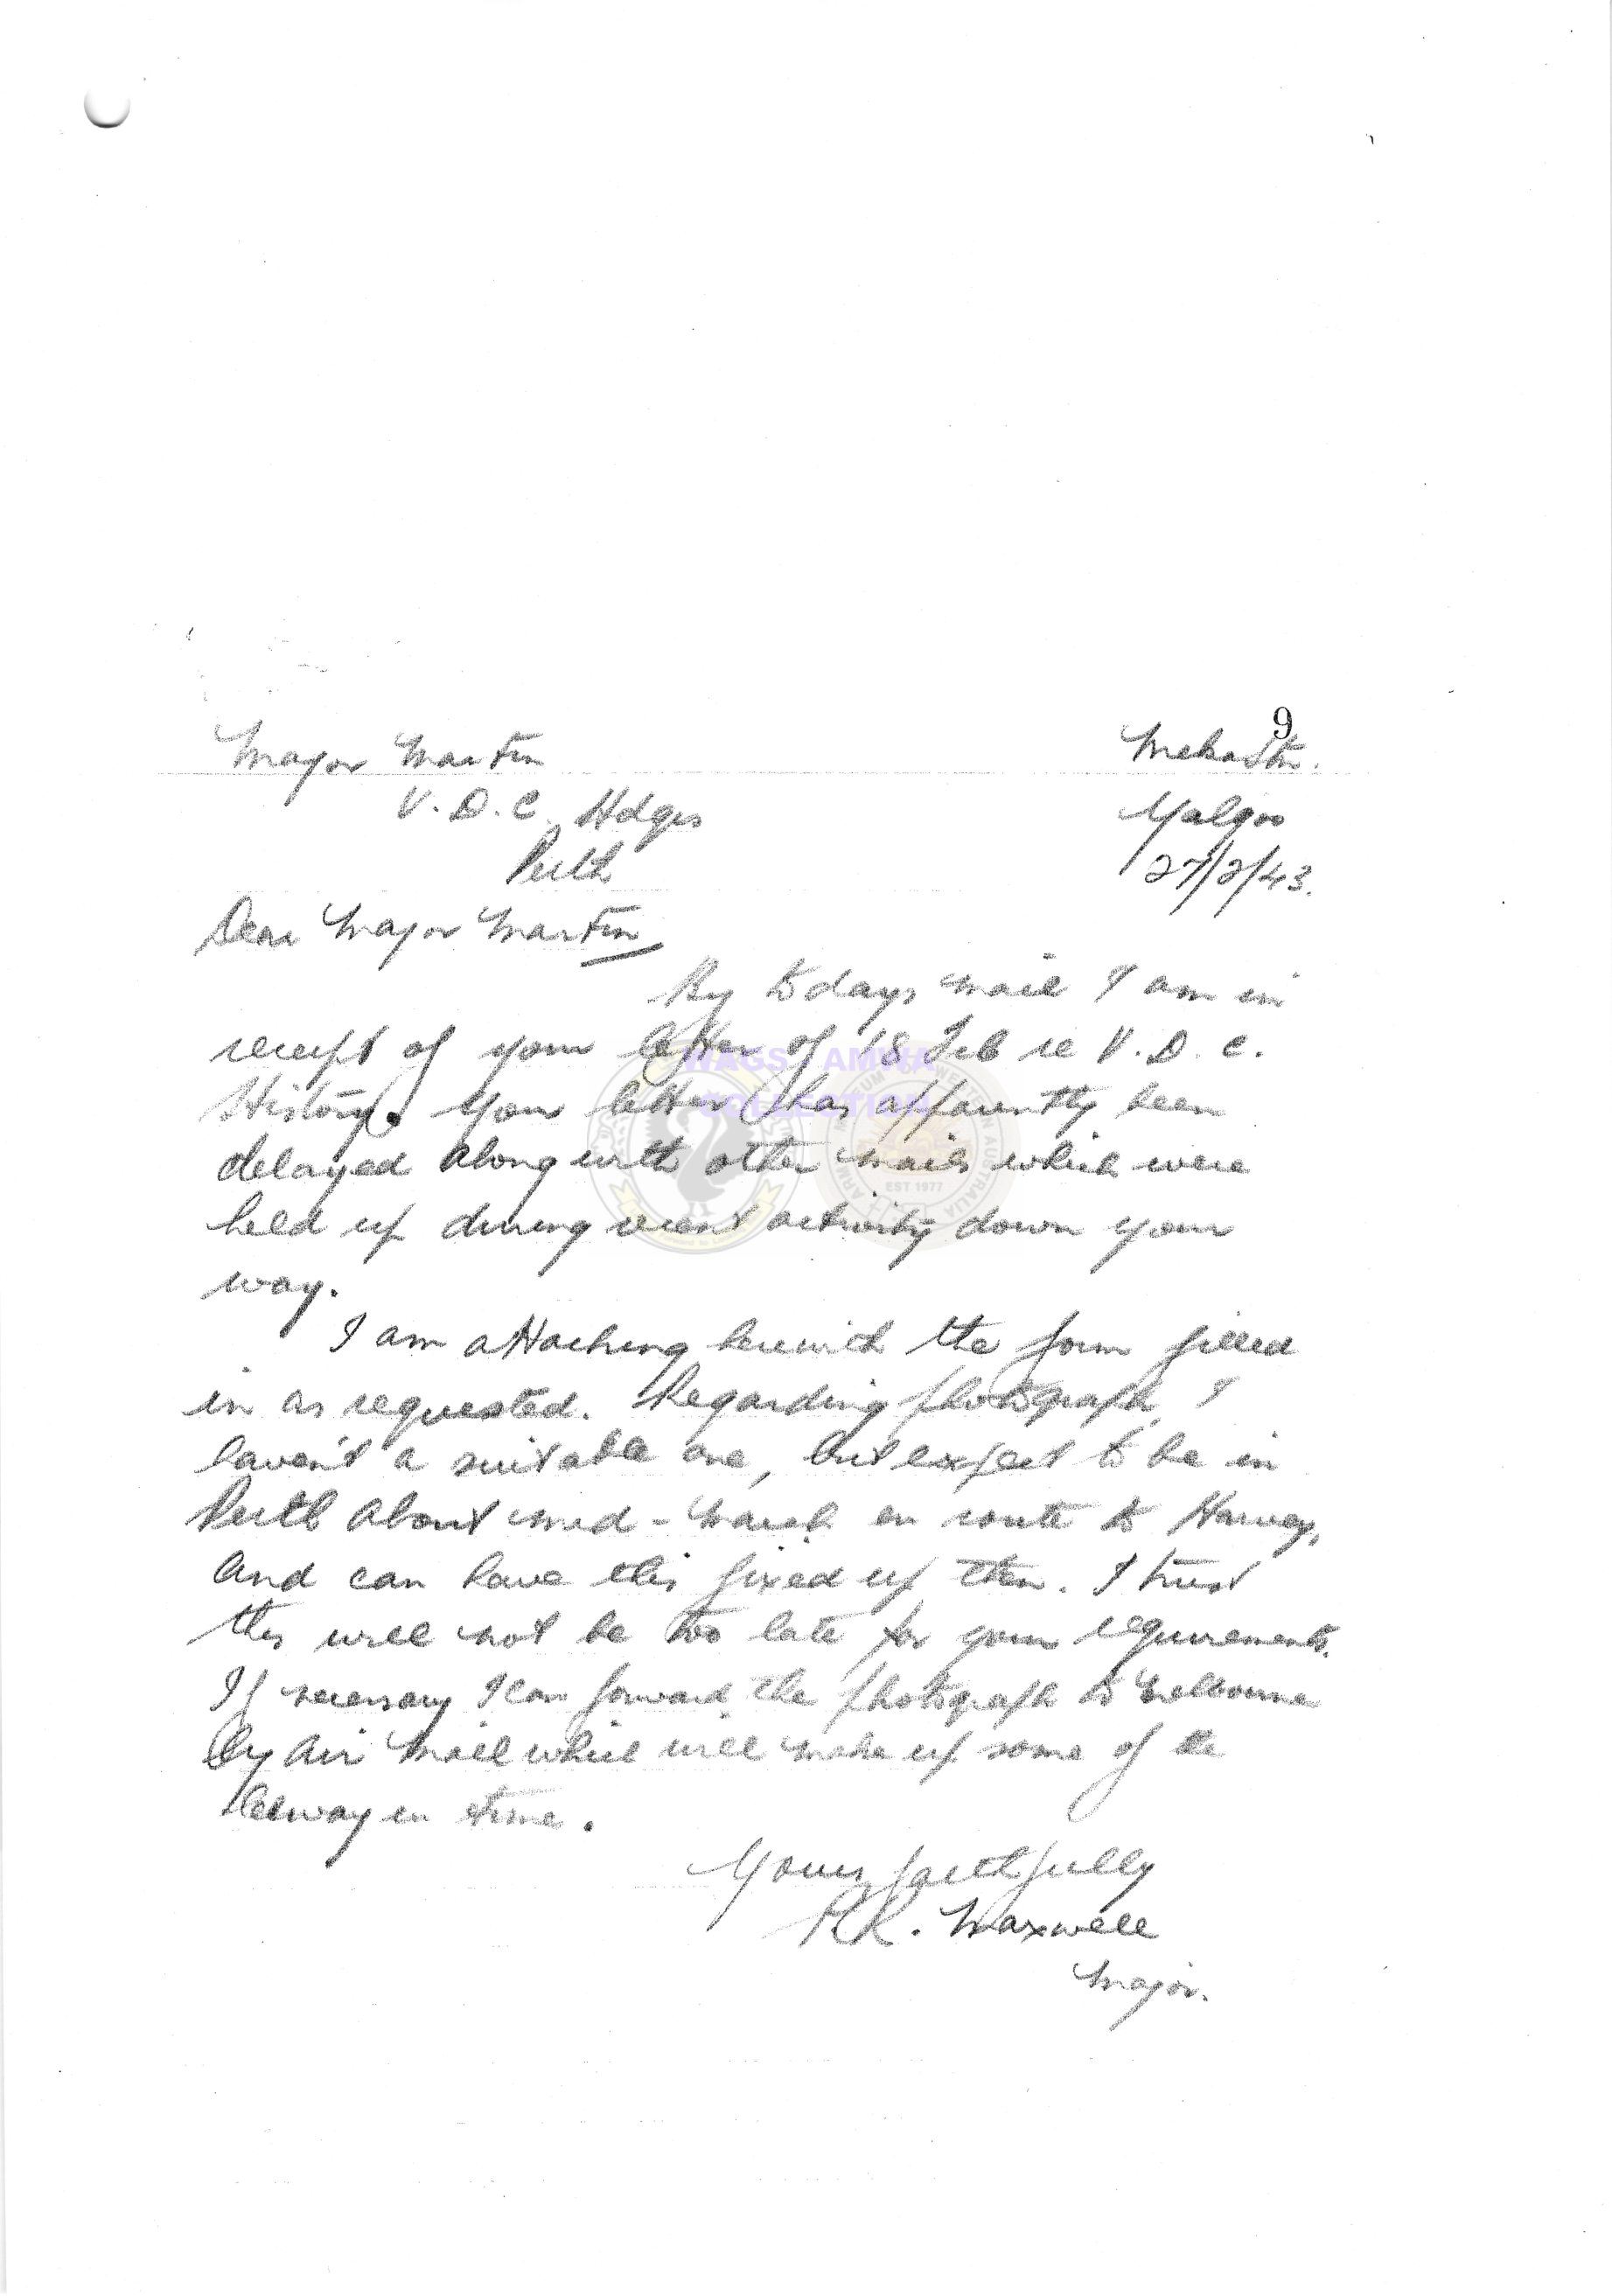 9
Major Martin
Meka Stn.
V. D. C. Hdqrs
Yalgoo
Perth
27/2/43.
Dear Major Martin
By todays mail I am in
receipt of your letter of 18 Feb re V. D. C.
History. Your letter has apparently been
delayed along with other mails which were
held up during recent activity down your
way.
I am attaching herewith the form filled
in as requested. Regarding photograph I
haven't a suitable one, but expect to be in
Perth about mid-March en route to Harvey,
and can have this fixed up then. I trust
this will not be too late for your requirements.
If necessary I can forward the photograph to Melbourne
by Air Mail which will make up some of the
in time.
Yours faithfully
Maxwell
Major.
WAGS - AMWA
COLLECTION
EST 1977